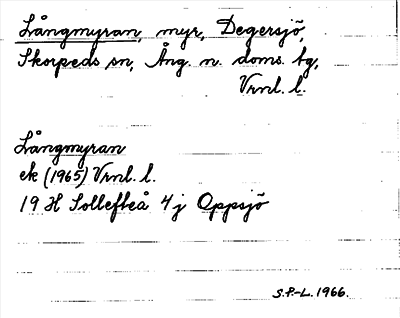 Långmyran, myr, Degersjö,
Skorpeds sn, Ång. n. doms. tg,
Vrnl. l.
Långmyran
ek (1965) Vrnl. l.
19 H Sollefteå 4j Oppsjö
S.P.-L. 1966.